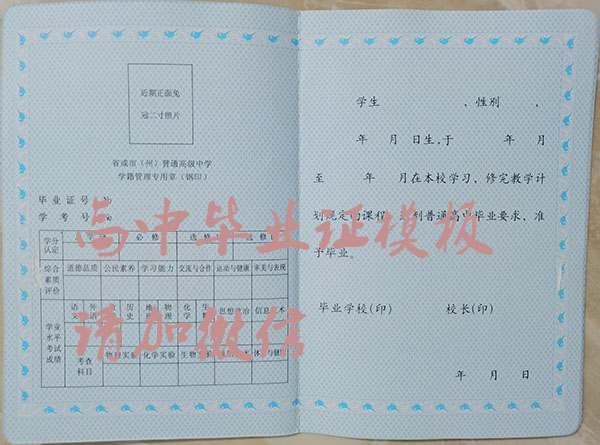 近期正面免
冠二寸照片
省或市(州)普通高级中学
学籍管理专用章(钢印)
毕业证号 №
学考号 №
学分
认定
必修
选修
综合
素质
评价
道德品质 公民素养 学习能力 交流与合作 运动与健康 审美与表现
学业
水平
考试
成绩
语文 外语 数 历史 地理 物理 化学 生物 思想政治 信息技术
考查
科目
物理实验 化学实验 生物实验
学生 ,性别 ,
年 月 日生,于 年 月
至 年 月在本校学习,修完教学计
划规定的课程,达到普通高中毕业要求,准
予毕业。
毕业学校(印) 校长(印)
年 月 日
高中毕业证模板
请加微信